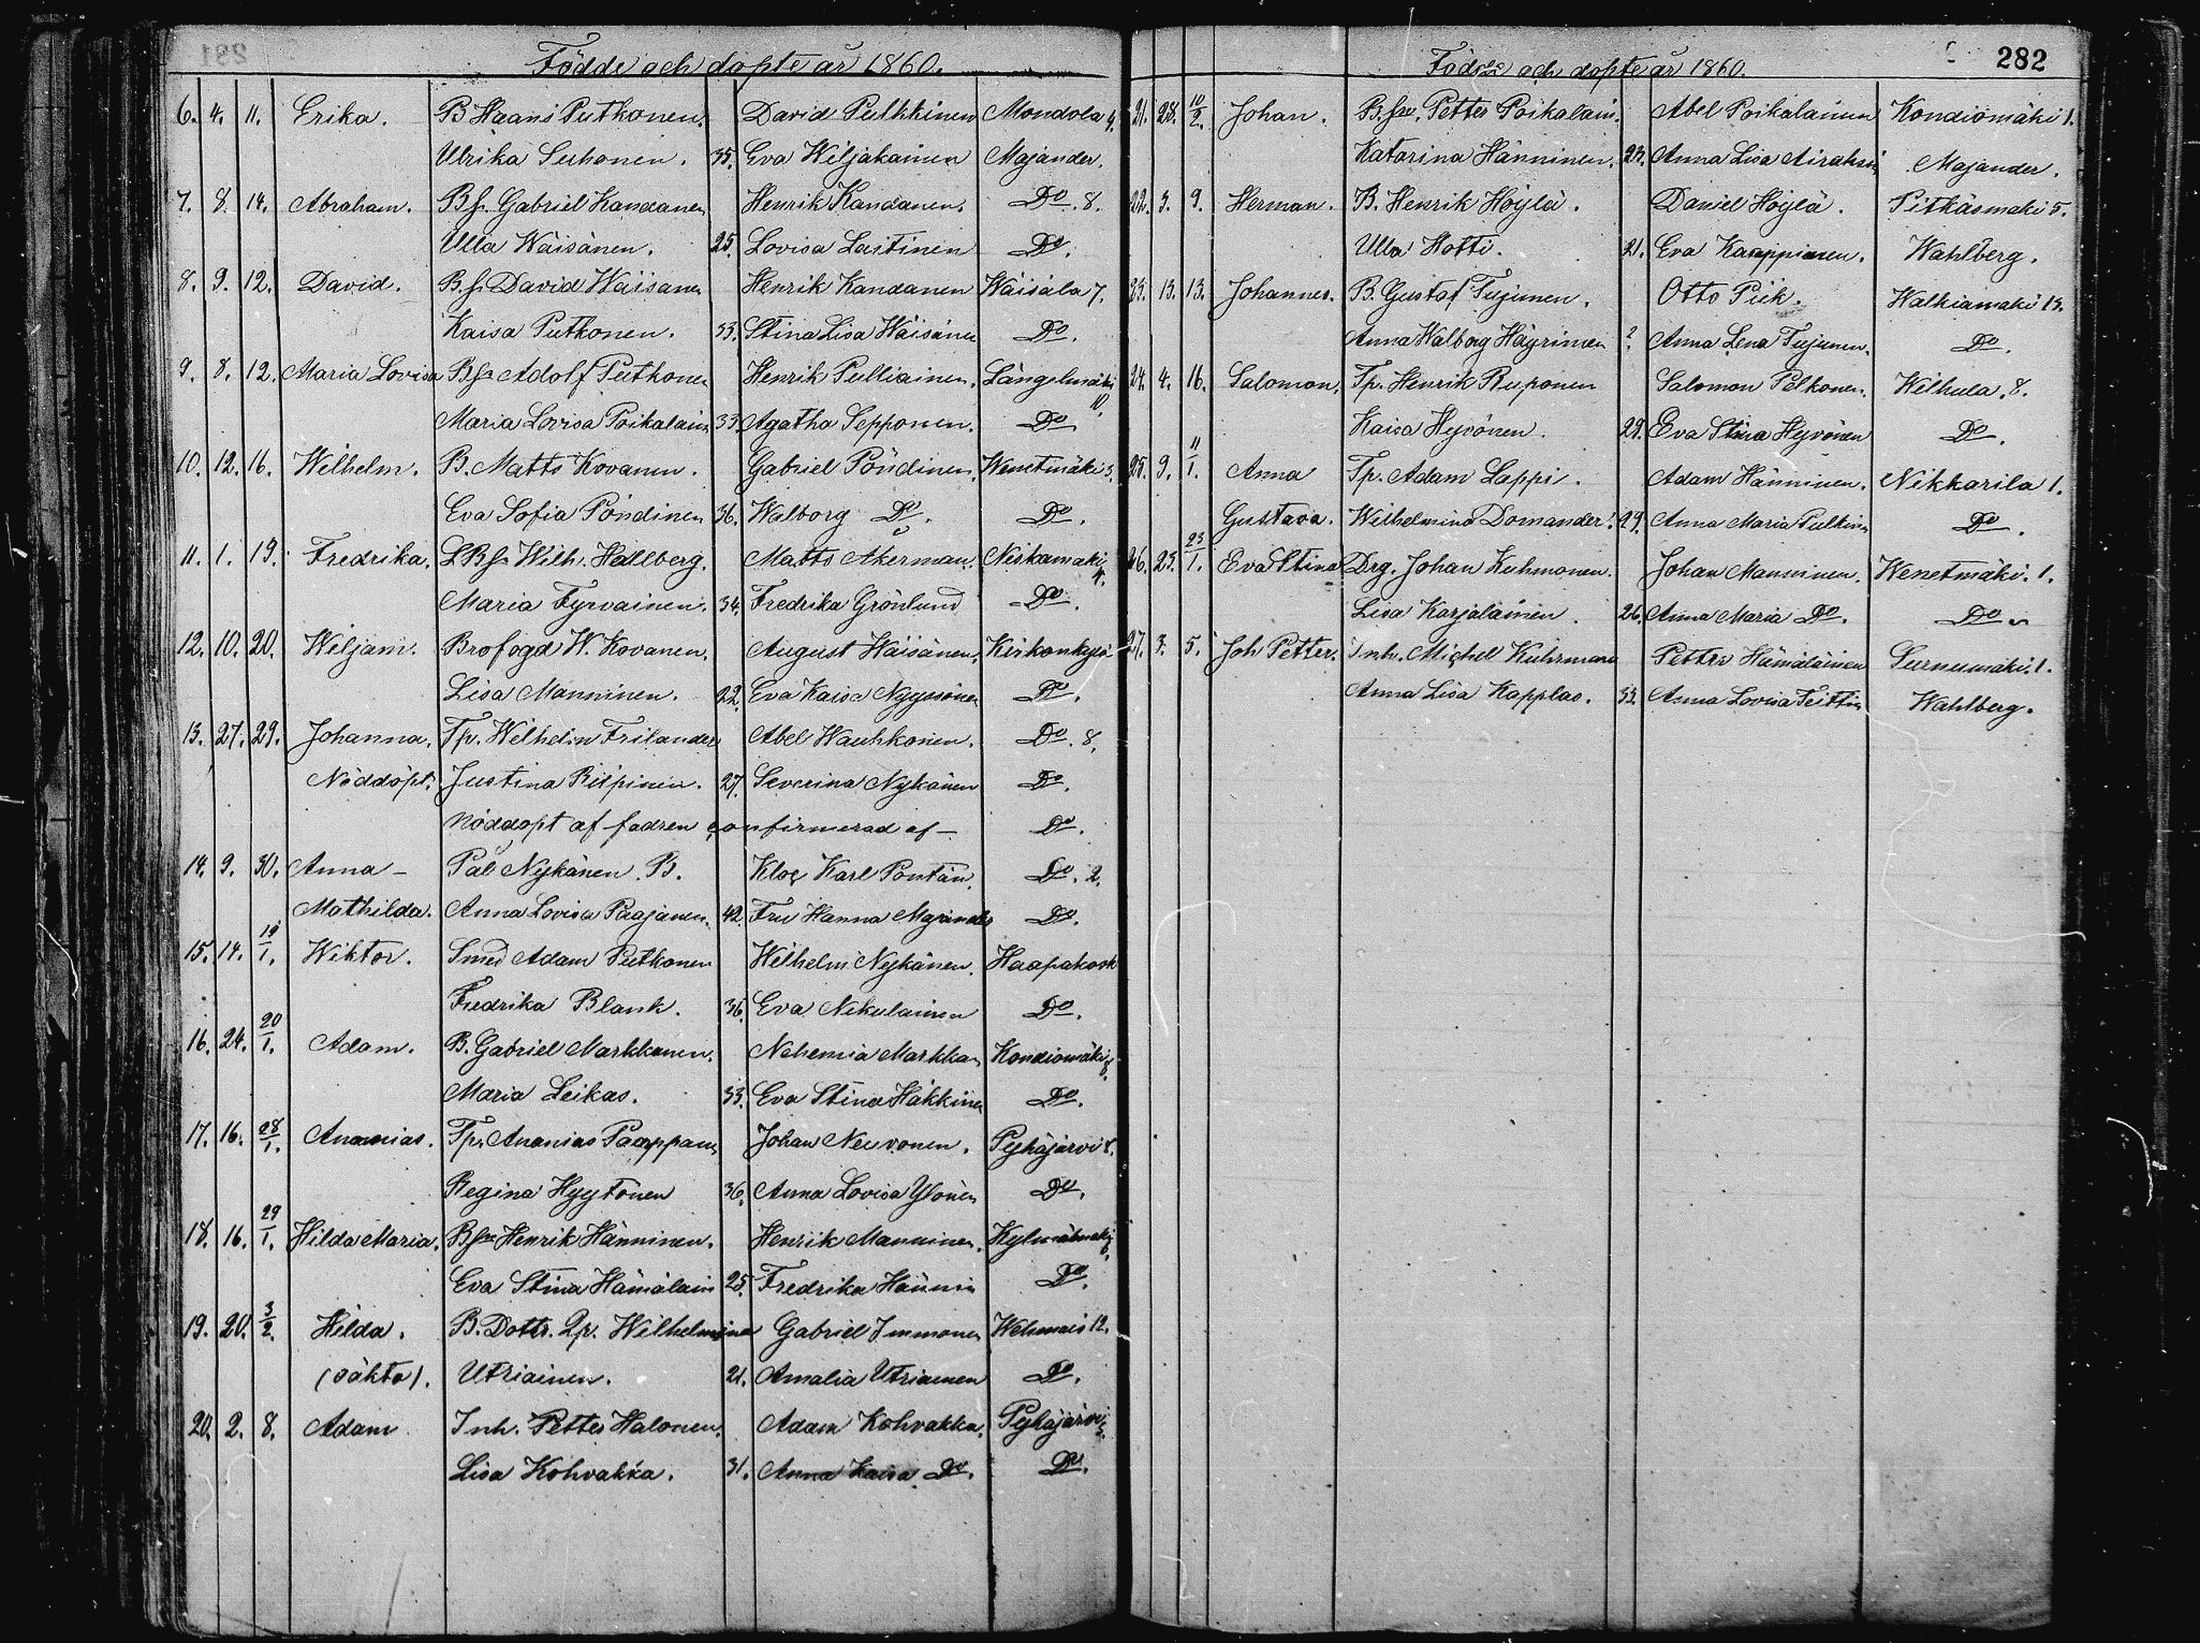 Födde och döpte år 1860.
6. 4. 11. Erika. B Haans Putkonen. David Pulkkinen Mondola 4.
Ulrika Suhonen. 35. Eva Wiljakainen Majander.
7. 8. 14. Abraham. Bfr. Gabriel Kandanen Henrik Kandanen. Do. 8.
Ulla Wäisänen. 25. Lovisa Lastinen Do.
8. 9. 12. David. B.fr David Wäisänen Henrik Kandanen Wäisälä 7.
Kaisa Putkonen. 33. Stina Lisa Wäisänen Do.
9. 8. 12. Maria Lovisa Bfr Adolf Putkonen Henrik Pulliainen. Längelmäki 10.
Maria Lovisa Poikalain 33. Agatha Sepponen. Do
10. 12. 16. Wilhelm. B. Matts Kovanen. Gabriel Pöndinen. Wenetmäki 3.
Eva Sofia Pöndinen 36. Walborg Do. Do.
11. 1. 19. Fredrika. LBfr Wilh. Hedlberg. Matts Akerman. Niskamäki 4.
Maria Tyrvainen. 34. Fredrika Grönlund Do.
12. 10. 20. Wiljam. Brofogd W. Kovanen. August Häisänen. Kirkonkylä
Lisa Manninen. 22. Eva Kaisa Nyyssönen Do.
13. 27. 29. Johanna. Tp. Wilhelm Frilander Abel Hauhkonen. Do. 8.
Nöddöpt. Justina Riipinen. 27. Severina Nykänen Do.
Nöddöpt af fadren confirmerad af - Do.
14. 9. 30. Anna - Pål Nykänen. B. Kloc Karl Pontän. Do. 2.
Mathilda. Anna Lovisa Paajanen. 42. Fru Hanna Majander Do.
15. 14. 19/1. Wiktor. Smed Adam Putkonen Wilhelm Nykänen. Haapakosk
Fredrika Blank. 36. Eva Nikulainen Do.
16. 24. 20/1. Adam. B. Gabriel Markkanen. Nehemia Markkan Kondiomäki 8.
Maria Leikas. 33. Eva Stina Häkkinen Do.
17. 16. 28/1. Ananias. Tp. Ananias Paappanen Johan Neuvonen. Pyhäjärvi 8.
Regina Hyytönen 36. Anna Lovisa Ylönen Do.
18. 16. 29/1. Hilda Maria. Bfr Henrik Hänninen. Henrik Manninen. Kylmämäki 8.
Eva Stina Hämälain 25. Fredrika Hännin Do.
19. 20. 3/2. Hilda. B. Dottr. Qp. Wilhelmina Gabriel Immonen Wehmais 12.
(oäkta). Utriainen. 21. Amalia Utriainen Do.
20. 2. 8. Adam Inh. Petter Halonen. Adam Kohvakka. Pyhäjärvi 3.
Lisa Kohvakka. 31. Anna Kaisa Do. Do.
Födde och döpte år 1860. 282
21. 28. 10/2. Johan. B.fr. Petter Poikalain. Abel Poikalainen Kondiomäki 1.
Katarina Hänninen. 23. Anna Lisa Airaksin Majander.
22. 3. 9. Herman. B. Henrik Höylä. Daniel Höylä. Pitkäsmäki 5.
Ulla Hotti. 21. Eva Kaappinen. Wahlberg.
23. 13. 13. Johannes. B. Gustaf Tujunen. Otto Piik. Walkiamäki 13.
Anna Walborg Häyrinen ? Anna Lena Tujunen. Do.
24. 4. 16. Salomon. Tp. Henrik Ruponen Salomon Pelkonen. Wilhula. 8.
Kaisa Hyvönen. 29. Eva Stina Hyvönen Do.
25. 9. 11/1. Anna Tp. Adam Lappi. Adam Hänninen. Nikkarila 1.
Gustava. Wilhelmina Domander. 29. Anna Maria Pulkin Do.
26. 25. 23/1. Eva Stina Drg. Johan Kuhmonen. Johan Manninen. Wenetmäki. 1.
Lisa Karjalainen. 26. Anna Maria Do. Do
27. 3. 5. Joh Petter. Inh. Michel Kuhrman Petter Hämäläinen Surnumäki. 1.
Anna Lisa Kapplas. 33. Anna Lovisa Teittin Wahlberg.